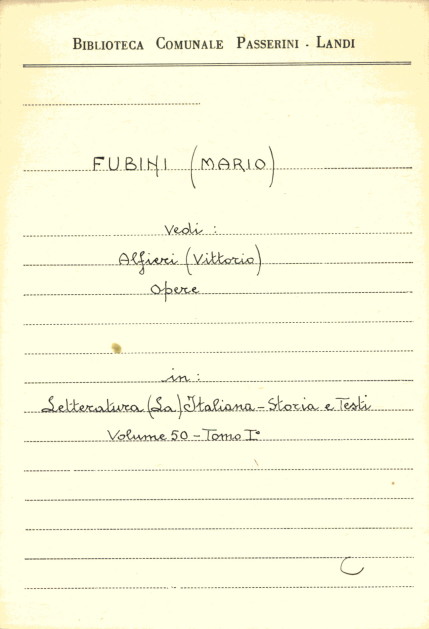 BIBLIOTECA COMUNALE PASSERINI - LANDI
FUBINI (MARIO)
Vedi :
Alfieri (Vittorio)
Opere
in :
Letteratura (La) Italiana - Storia e Testi
Volume 50 - Tomo I°
C